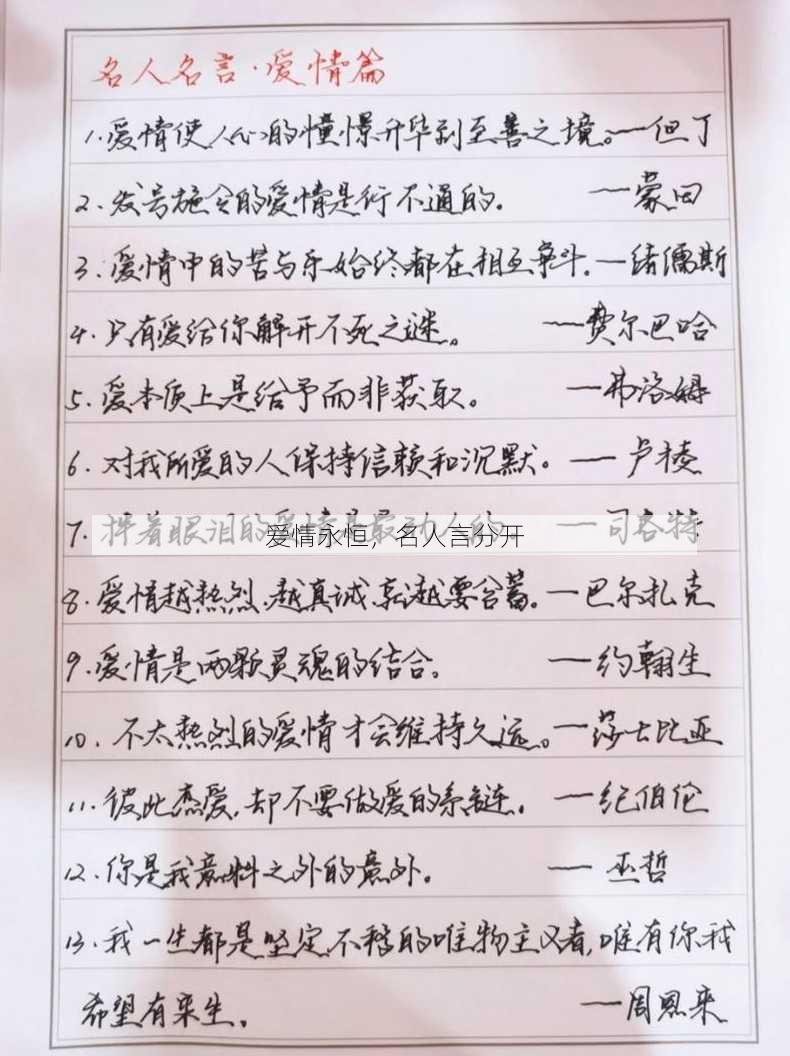 名人名言·爱情篇
1.爱情使人心的憧憬升华到至善之境。——但丁
2.发号施令的爱情是行不通的。——蒙田
3.爱情中的苦与乐始终都在相互争斗.—绪儒斯
4.只有爱给你解开不死之谜。——费尔巴哈
5.爱本质上是给予而非获取。——弗洛姆
6.对我所爱的人保持信赖和沉默。——卢棱
7.拌着眼泪的爱情是最动人的.——司各特
爱情永恒,名人言分开
8.爱情越热烈.越真诚.就越要含蓄。——巴尔扎克
9.爱情是两颗灵魂的结合。——约翰生
10.不太热烈的爱情才会维持久远。—莎士比亚
11.彼此恋爱,却不要做爱的系链.——纪伯伦
12.你是我意料之外的意外.——巫哲
13.我一生都是坚定不移的唯物主义者,唯有你我
希望有来生.——周恩来